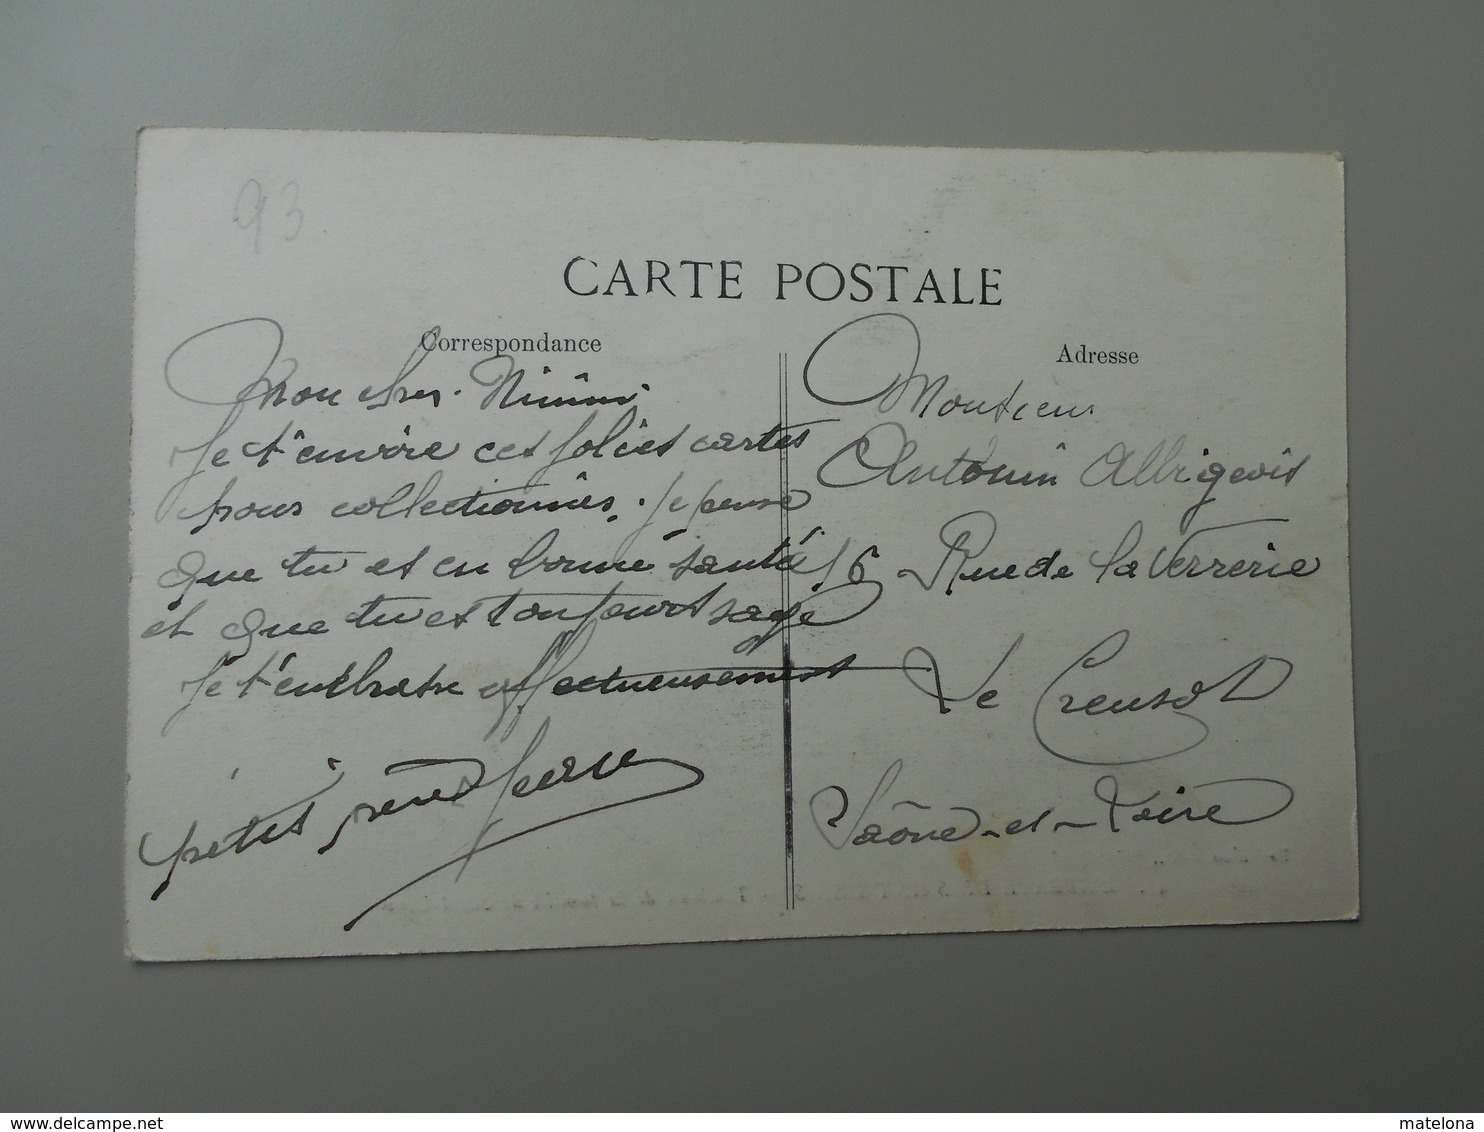 93
CARTE POSTALE
Correspondance
Mon cher Ninini
Je t'envoie ces jolies cartes
pour collectionnies. Je pense
que tu es en bonne santé
et que tu es toujours sage
Je t'embrasse affectueusement
petit
Adresse
Monsieur
Antonin Albigeois
16 Rue de la Verrerie
Le Creusot
Saône-et-Loire
delcampe.net
matelona